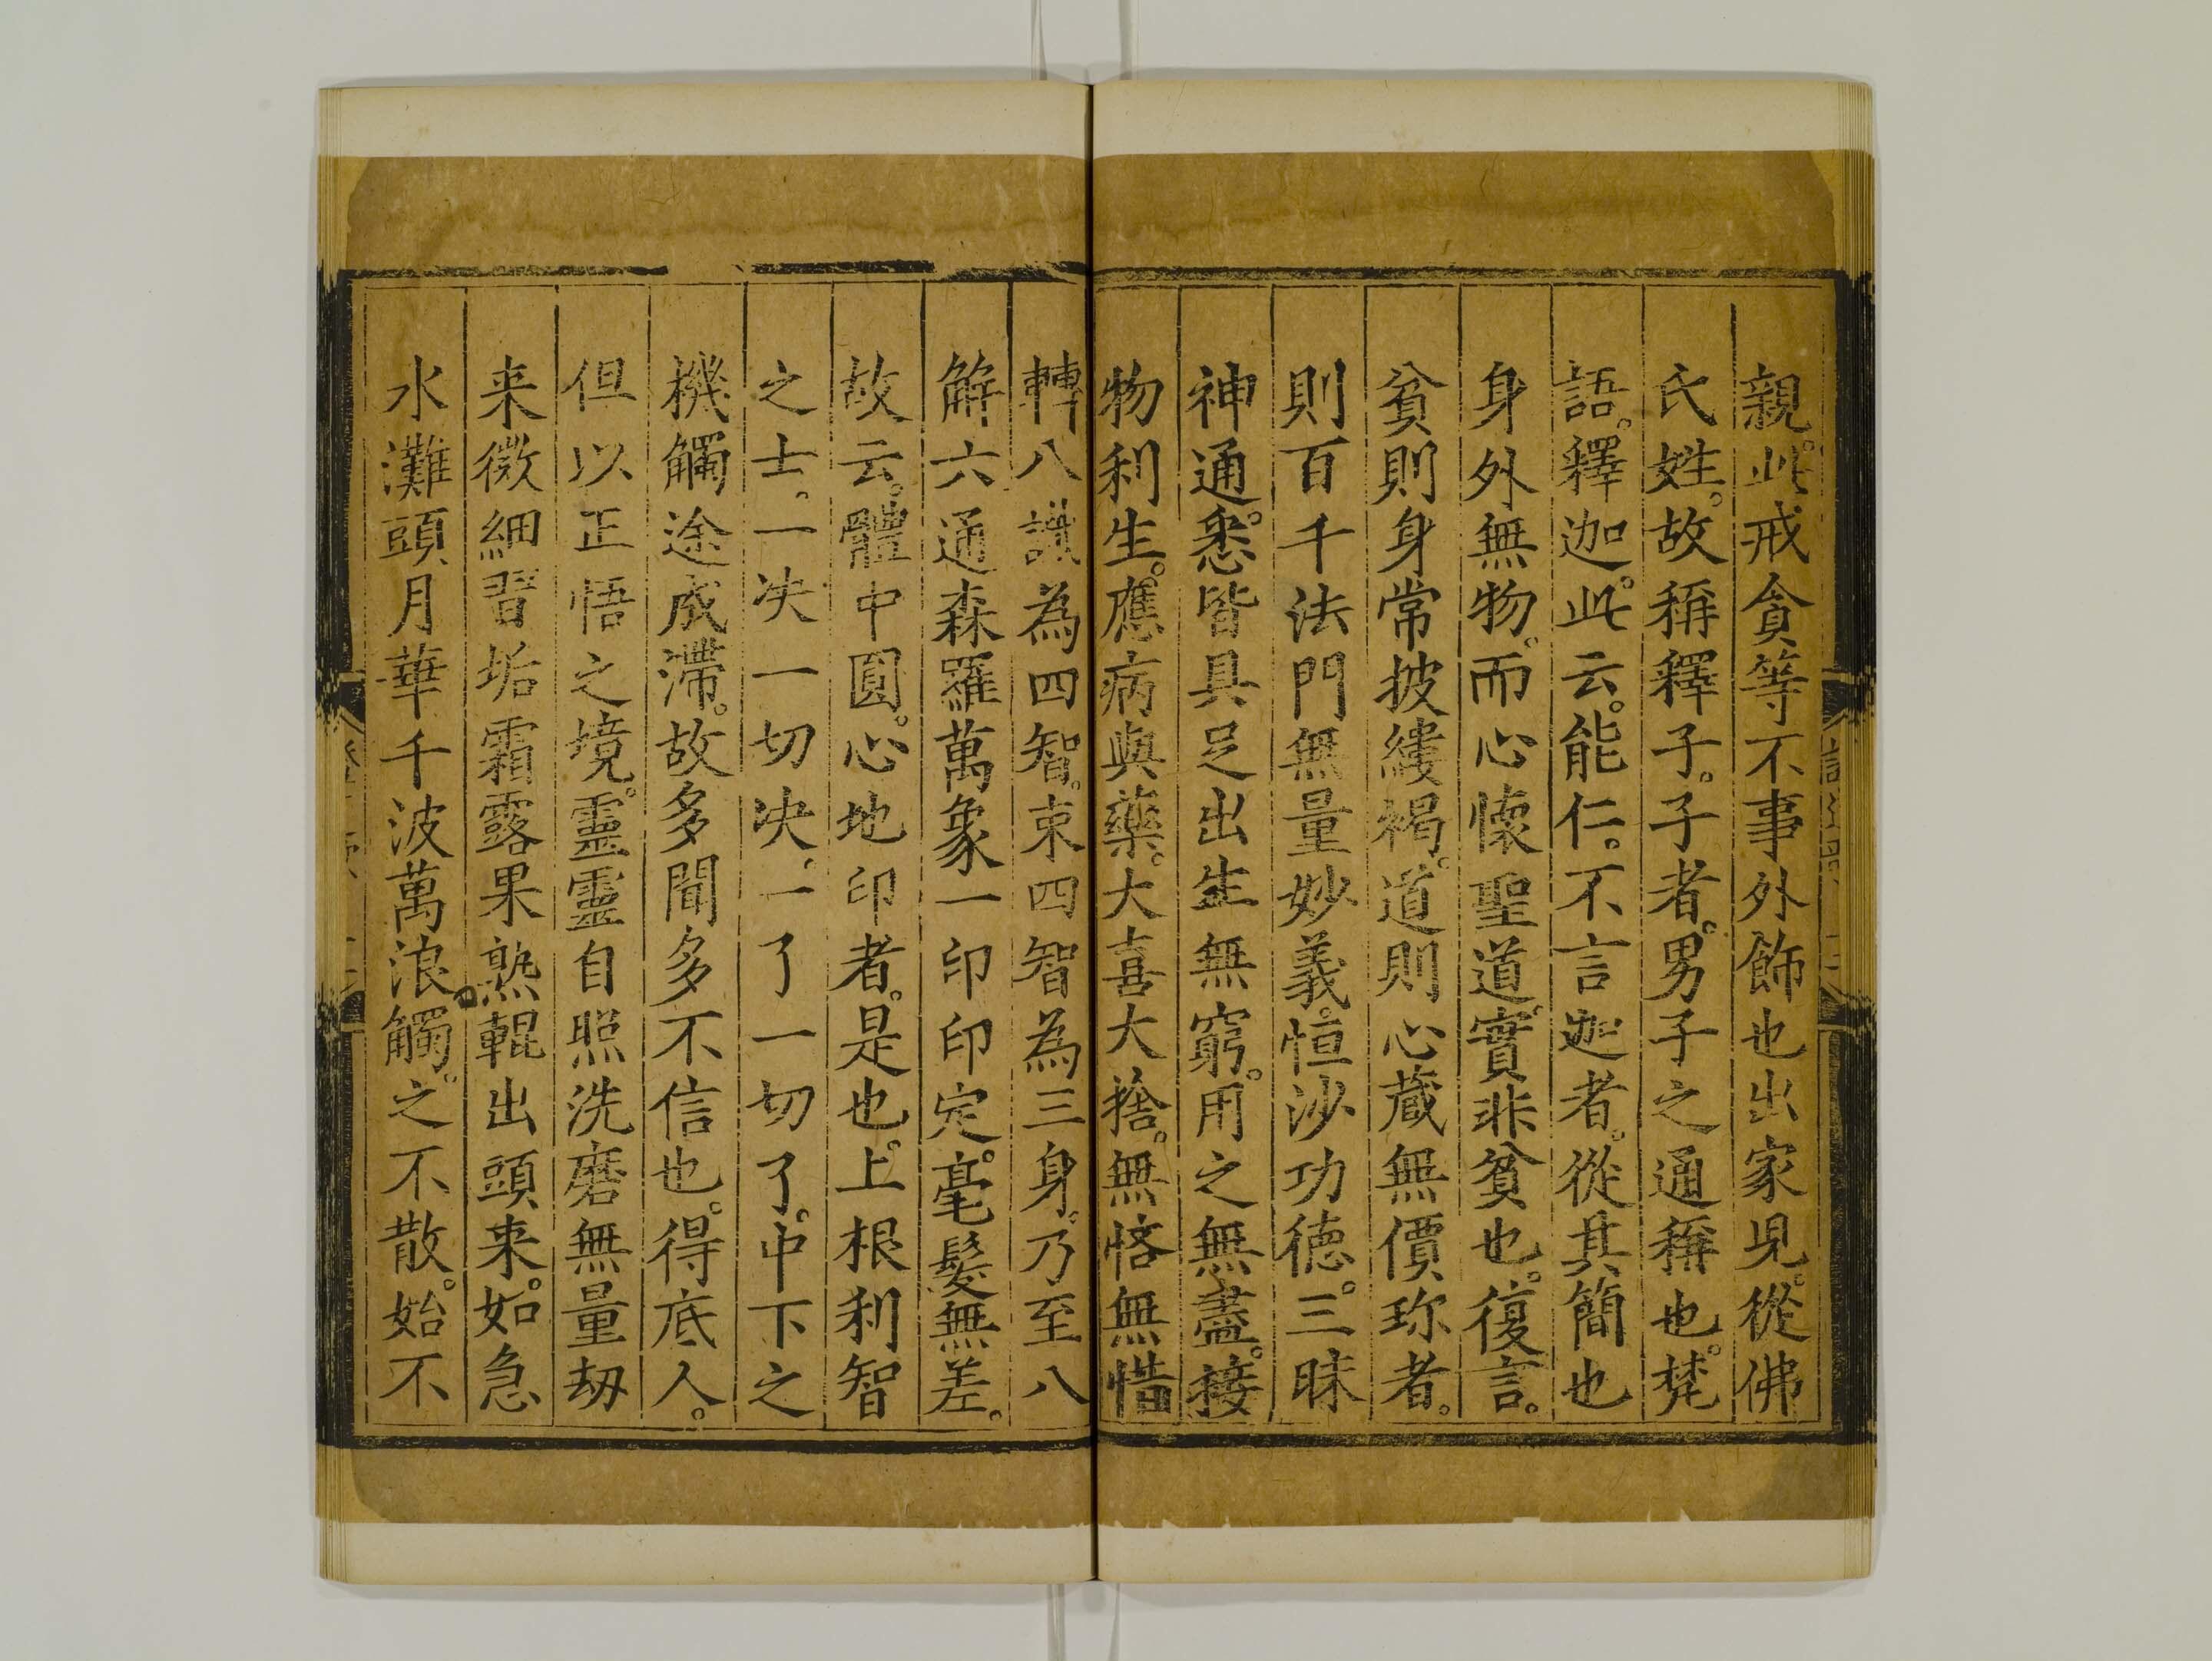 親。此戒貪等不事外飾也出家児。從佛
氏姓。故稱釋子。子者。男子之通稱也。梵
語。釋迦。此云。能仁。不言迦者。從其簡也
身外無物。而心懷聖道。實非貧也。復言。
貧則身常披縷褐。道則心蔵無價珎者。
則百千法門無量妙義。恒沙功德。三昧
神通。悉皆具足出生無窮。用之無盡。接
物利生。應病與藥。大喜大捨。無恡無惜
轉八識為四智。束四智為三身。乃至八
解六通森羅萬象一印印定。毫髮無差。
故云。體中圓。心地印者。是也。上根利智
之士。一决一切决。一了一切了。中下之
機觸途成滯。故多聞多不信也。得底人。
但以正悟之境。靈靈自照洗磨無量劫
来微細習垢霜露果熟輥出頭来。如急
水灘頭月華千波萬浪。觸之。不散。始不